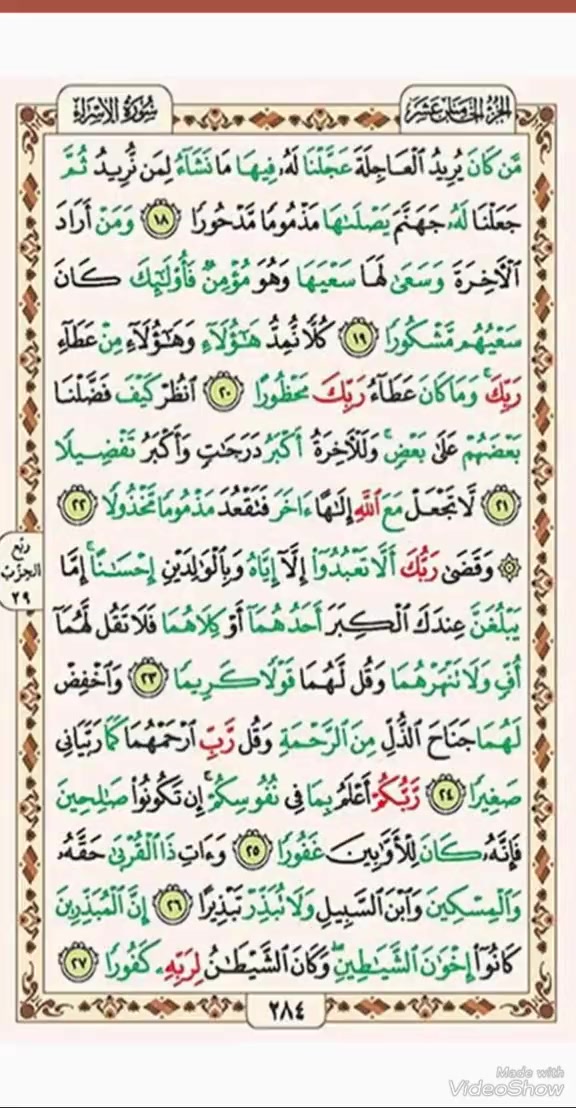 سُورَةُ الإِسْرَاءِ
الجُزْءُ الخَامِسَ عَشَرَ
مَّن كَانَ يُرِيدُ ٱلْعَاجِلَةَ عَجَّلْنَا لَهُۥ فِيهَا مَا نَشَآءُ لِمَن نُّرِيدُ ثُمَّ
جَعَلْنَا لَهُۥ جَهَنَّمَ يَصْلَىٰهَا مَذْمُومًا مَّدْحُورًا ١٨ وَمَنْ أَرَادَ
ٱلْأَخِرَةَ وَسَعَىٰ لَهَا سَعْيَهَا وَهُوَ مُؤْمِنٌ فَأُو۟لَٰٓئِكَ كَانَ
سَعْيُهُم مَّشْكُورًا ١٩ كُلًّا نُّمِدُّ هَٰٓؤُلَآءِ وَهَٰٓؤُلَآءِ مِنْ عَطَآءِ
رَبِّكَ ۚ وَمَا كَانَ عَطَآءُ رَبِّكَ مَحْظُورًا ٢٠ ٱنظُرْ كَيْفَ فَضَّلْنَا
بَعْضَهُمْ عَلَىٰ بَعْضٍ ۚ وَلَلْأَخِرَةُ أَكْبَرُ دَرَجَٰتٍ وَأَكْبَرُ تَفْضِيلًا
٢١ لَّا تَجْعَلْ مَعَ ٱللَّهِ إِلَٰهًا ءَاخَرَ فَتَقْعُدَ مَذْمُومًا مَّخْذُولًا ٢٢
۞ وَقَضَىٰ رَبُّكَ أَلَّا تَعْبُدُوٓا۟ إِلَّآ إِيَّاهُ وَبِٱلْوَٰلِدَيْنِ إِحْسَٰنًا ۚ إِمَّا
يَبْلُغَنَّ عِندَكَ ٱلْكِبَرَ أَحَدُهُمَآ أَوْ كِلَاهُمَا فَلَا تَقُل لَّهُمَآ
أُفٍّ وَلَا تَنْهَرْهُمَا وَقُل لَّهُمَا قَوْلًا كَرِيمًا ٢٣ وَٱخْفِضْ
لَهُمَا جَنَاحَ ٱلذُّلِّ مِنَ ٱلرَّحْمَةِ وَقُل رَّبِّ ٱرْحَمْهُمَا كَمَا رَبَّيَانِى
صَغِيرًا ٢٤ رَّبُّكُمْ أَعْلَمُ بِمَا فِى نُفُوسِكُمْ ۚ إِن تَكُونُوا۟ صَٰلِحِينَ
فَإِنَّهُۥ كَانَ لِلْأَوَّٰبِينَ غَفُورًا ٢٥ وَءَاتِ ذَا ٱلْقُرْبَىٰ حَقَّهُۥ
وَٱلْمِسْكِينَ وَٱبْنَ ٱلسَّبِيلِ وَلَا تُبَذِّرْ تَبْذِيرًا ٢٦ إِنَّ ٱلْمُبَذِّرِينَ
كَانُوٓا۟ إِخْوَٰنَ ٱلشَّيَٰطِينِ ۖ وَكَانَ ٱلشَّيْطَٰنُ لِرَبِّهِۦ كَفُورًا ٢٧
ربع
الحزب
٢٩
٢٨٤
Made with
VideoShow